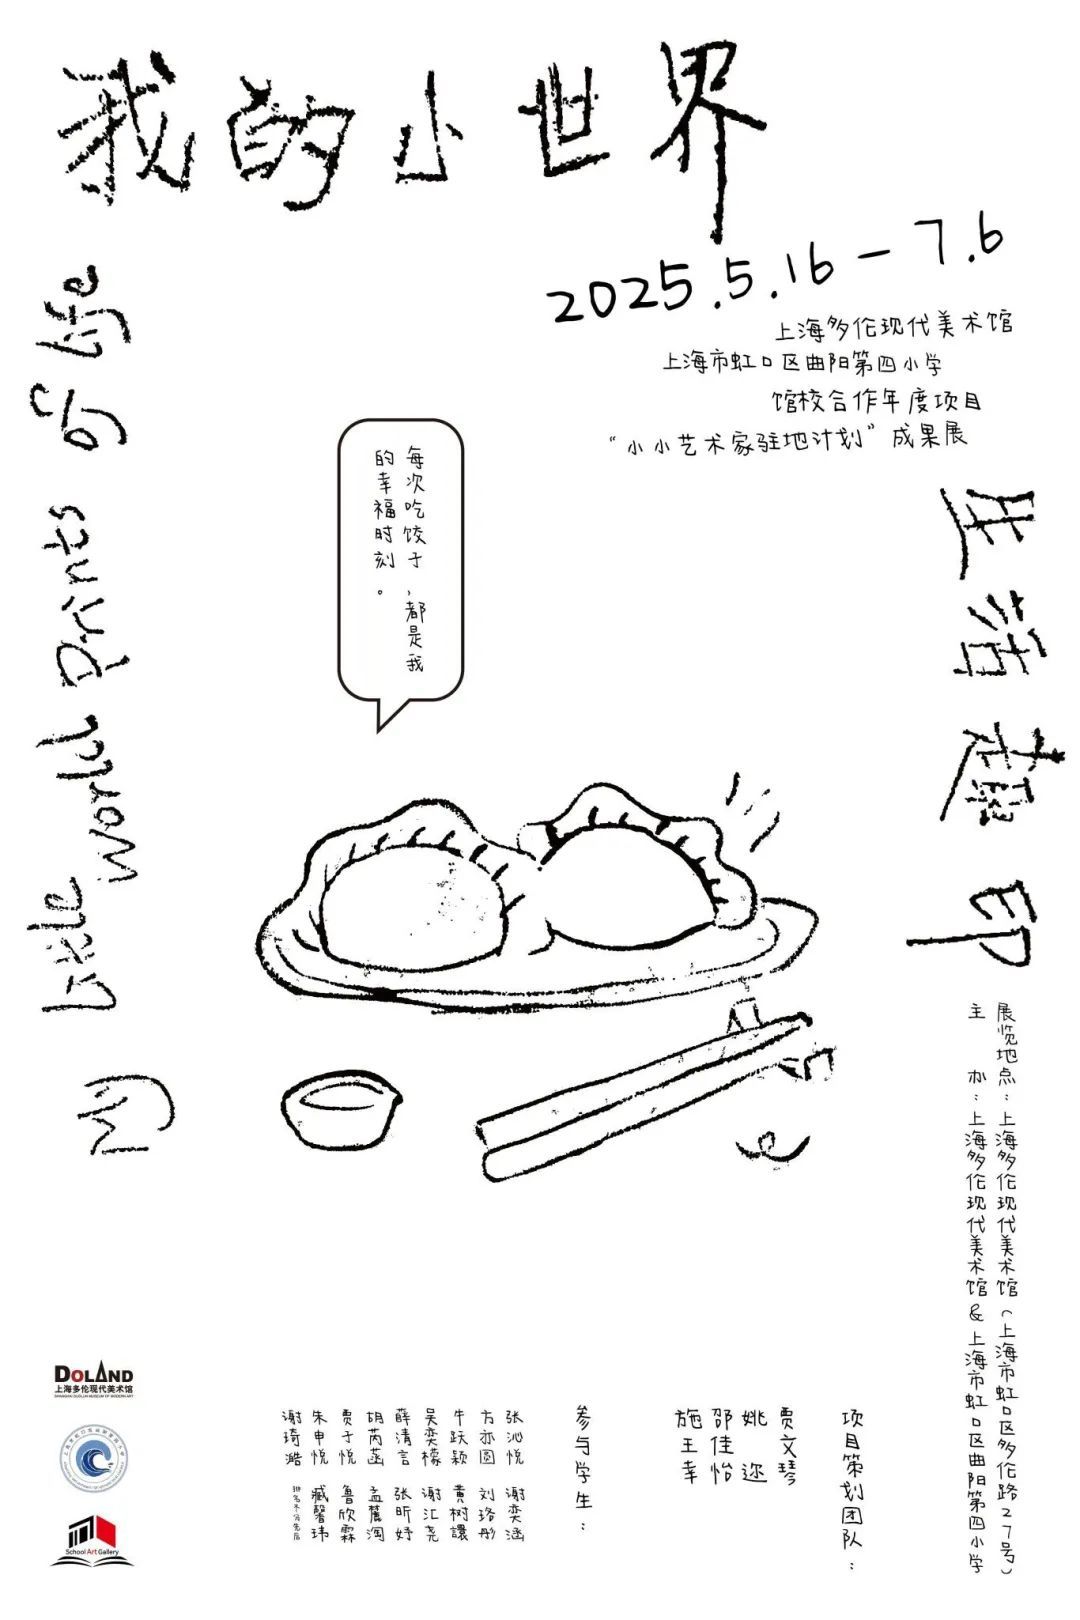 我的小世界
2025.5.16 — 7.6
上海多伦现代美术馆
上海市虹口区曲阳第四小学
馆校合作年度项目
“小小艺术家驻地计划”成果展
生活趣印
My little world Prints of life
每次吃饺子,都是我
的幸福时刻。
展览地点:上海多伦现代美术馆(上海市虹口区多伦路27号)
主 办:上海多伦现代美术馆&上海市虹口区曲阳第四小学
项目策划团队:
贾文琴
姚 迩
邵佳怡
施王幸
参与学生:
张沁悦 谢奕涵
方亦圆 刘珞彤
牛跃颖 黄树譞
吴奕檬 谢汇尧
薛清言 张昕妤
胡芮菡 孟麓淘
贾子悦 鲁欣霖
朱申悦 臧馨玮
谢琦澔 排名不分先后
DOLAND
上海多伦现代美术馆
SHANGHAI DUOLUN MUSEUM OF MODERN ART
School Art Gallery